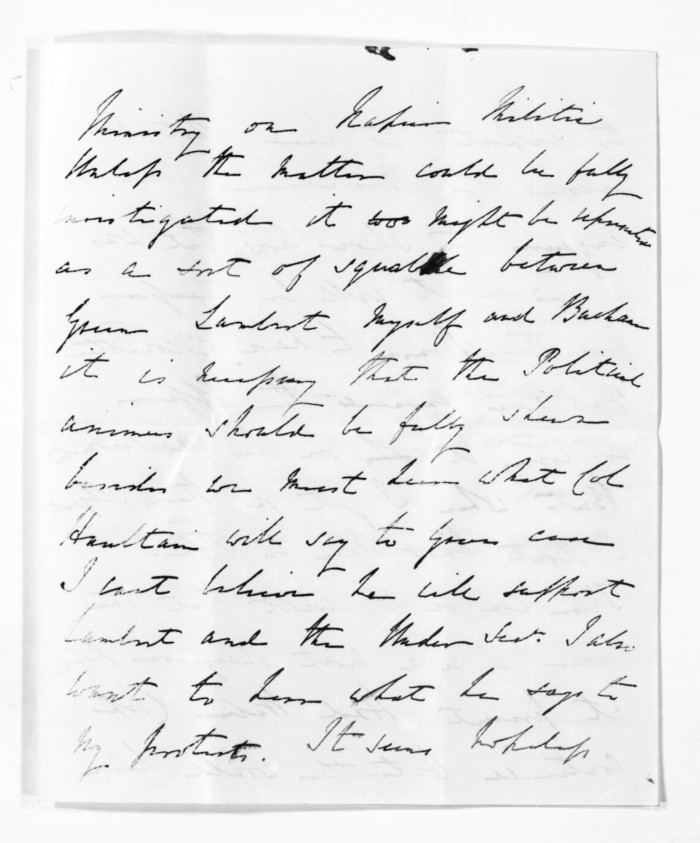 Ministry on Napier Militia
Unless the matter could be fully
investigated it soon might be represented
as a sort of squabble between
Green Lambert Myself and Buchanan
it is necessary that the Political
animus should be fully shewn
besides we must hear what Col
Haultain will say to Greens case
I cant believe he will support
Lambert and the Under Secy. I also
want to hear what he says to
my protests. It seems hopeless